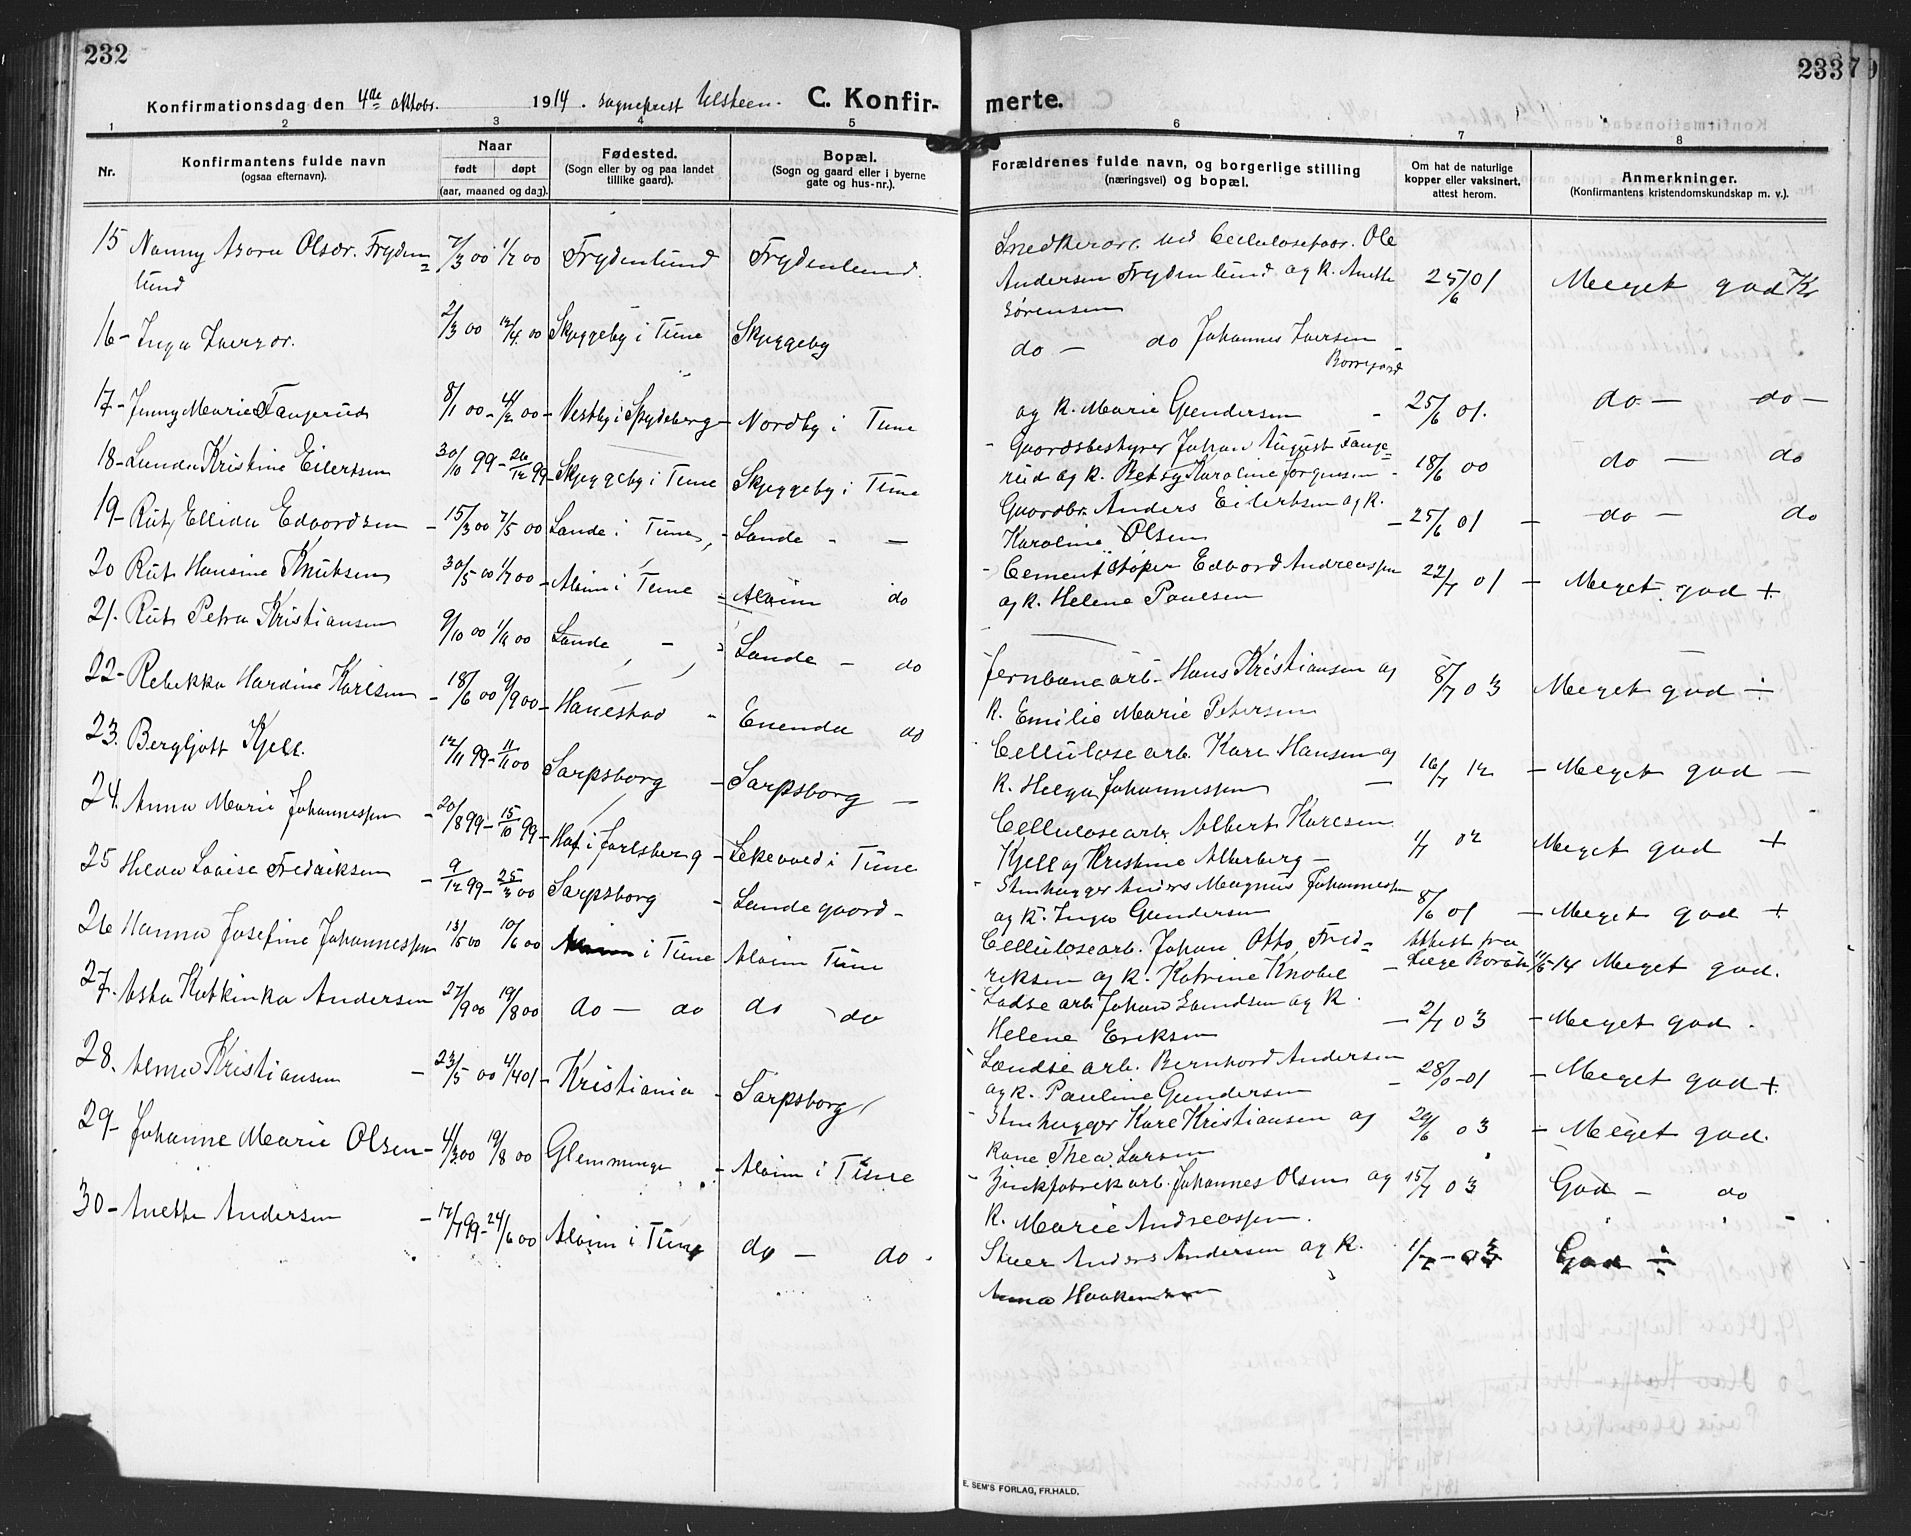 232
Konfirmationsdag den 4de oktobr. 1914. sogneprest Ulsteen. C. Konfir-
1 2 3 4 5
Nr. Konfirmantens fulde navn (ogsaa efternavn). Naar født døpt (aar, maaned og dag). Fødested. (Sogn eller by og paa landet tillike gaard). Bopæl. (Sogn og gaard eller i byerne gate og hus-nr.).
15 Nanny Asora Olsdr. Fryden= 7/3 00 1/7 00 Frydenlund Frydenlund.
lund
16 - Inga Iversdr. 2/3 00 Skyggeby i Tune Skyggeby
17 - Jenny Marie Fangerud 8/1 00 - 4/2 00 - Vestby i Spydeberg - Nordby i Tune
18 - Lunda Kristine Eilertsen 30/10 99 - 26/12 99 - Skyggeby i Tune Skyggeby i Tune
19 - Rut Ellida Edvardsen - 15/3 00 7/5 00 Lande i Tune, - Lande - -
20 Rut Hansine Knutsen 30/5 00 1/7 00 - Alvim i Tune - Alvim do
21. Rut Petra Kristiansen 9/10 00 Lande, - , Lande - do
22 - Rebekka Hardine Karlsen - 18/6 00 9/9 00 - Hanestad - Enenda do
23. Bergljott Kjell. 12/11 99 - 11/11 00 Sarpsborg - Sarpsborg -
24. Anna Marie Johannessen - 20/8 99 - 15/10 99 - Hof i Jarlsberg - Lekevold i Tune
25 Hilda Lovise Fredriksen - 9/12 99 - 25/3 00 Sarpsborg - Lande gaard -
26 Hanna Josefine Johannessen 13/5 00 10/6 00 Alvim i Tune Alvim Tune
27. Asta Katinka Andersen 27/9 00 19/8 00 do - do do - do
28. Alma Kristiansen - 23/5 00 4/4 01 - Kristiania - Sarpsborg
29 - Johanne Marie Olsen - 4/3 00 19/8 00 Glemminge - Alvim i Tune
30 - Anette Andersen - 17/7 99 - 24/6 00 Alvim i Tune do - do.
2337
merte.
6 7 8
Forældrenes fulde navn, og borgerlige stilling (næringsvei) og bopæl. Om hat de naturlige kopper eller vaksinert, attest herom. Anmerkninger. (Konfirmantens kristendomskundskap m. v.).
Snedkerar. ved Cellulosefabr. Ole
Andersen Frydenlund og k. Anette 25/6 01 Meget god
Sørensen
do - do Johannes Iversen
Borregård
og k. Marie Gundersen - 25/6 01. do - do -
- Gaardsbestyrer Johan August Fange=
rud og k. Betsy Karoline Jørgensen - 18/6 00 do - do
Gaardbr. Anders Eilertsen og k.
Karoline Olsen - 25/6 01 - do - do
- Cementstøper Edvard Andreassen 22/7 01 - Meget god +
og k. Helene Paulsen
Jernbanearb. Hans Kristiansen og 8/7 03 Meget god ÷
k. Emilie Marie Petersen
Cellulosearb. Karl Hansen og 16/7 12 - Meget god -
k. Helga Johannessen -
Cellulosearb. Albert Karlsen 02 Meget god +
Kjell og Kristine Alberberg -
- Stenhugger Anders Magnus Johannessen
og k. Inga Gundersen 8/6 01 - Meget god +
Cellulosearb. Johan Otto Fred= Attest fra
riksen og k. Katrine Knobel - Læge 14 Meget god.
arb. Johan og k.
Helene Eriksen - 2/7 03 - Meget god.
arb. Bernhard Andersen
og k. Pauline Gundersen - 28/ 01 - Meget god +
- Stenhugger Karl Kristiansen og 03 - Meget god.
kone Thea Larsen
- Zinkfabrikarb. Johannes Olsen og 15/7 03 God - do
k. Marie Andreassen.
Stuer Anders Andersen og k. 1/7 - 03 God ÷
Anna Haakensen
E. SEM'S FORLAG, FR.HALD.